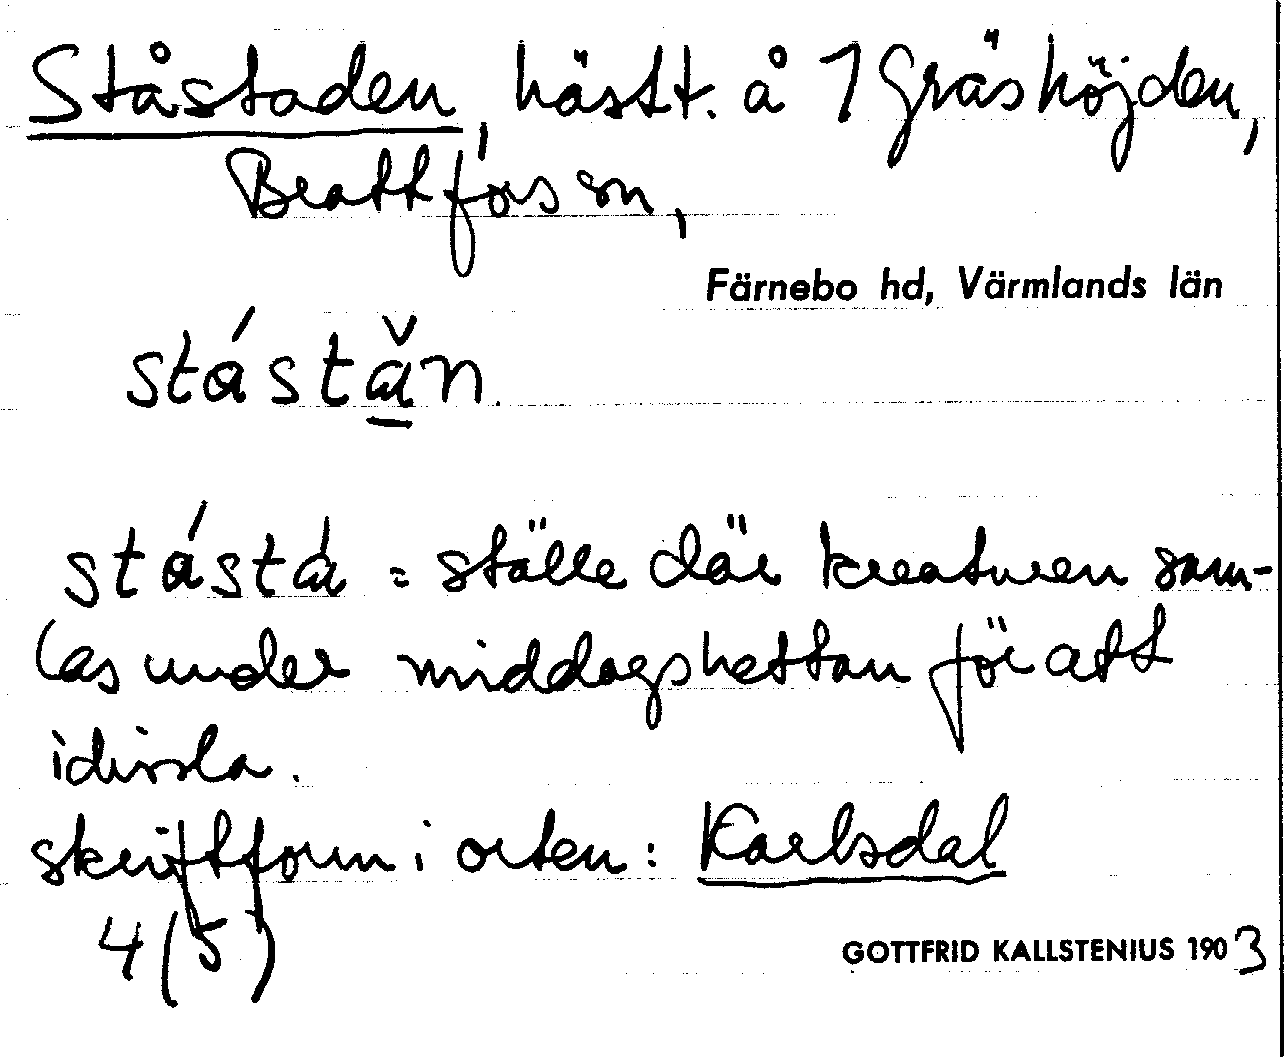 Ståstaden, hästt. å 1 Gräshöjden,
Brattfors sn,
Färnebo hd, Värmlands län
stástǎn.
stástá = ställe där kreaturen sam-
las under middagshettan för att
idissla.
skriftform i orten: Karlsdal
4 (5)
GOTTFRID KALLSTENIUS 1903